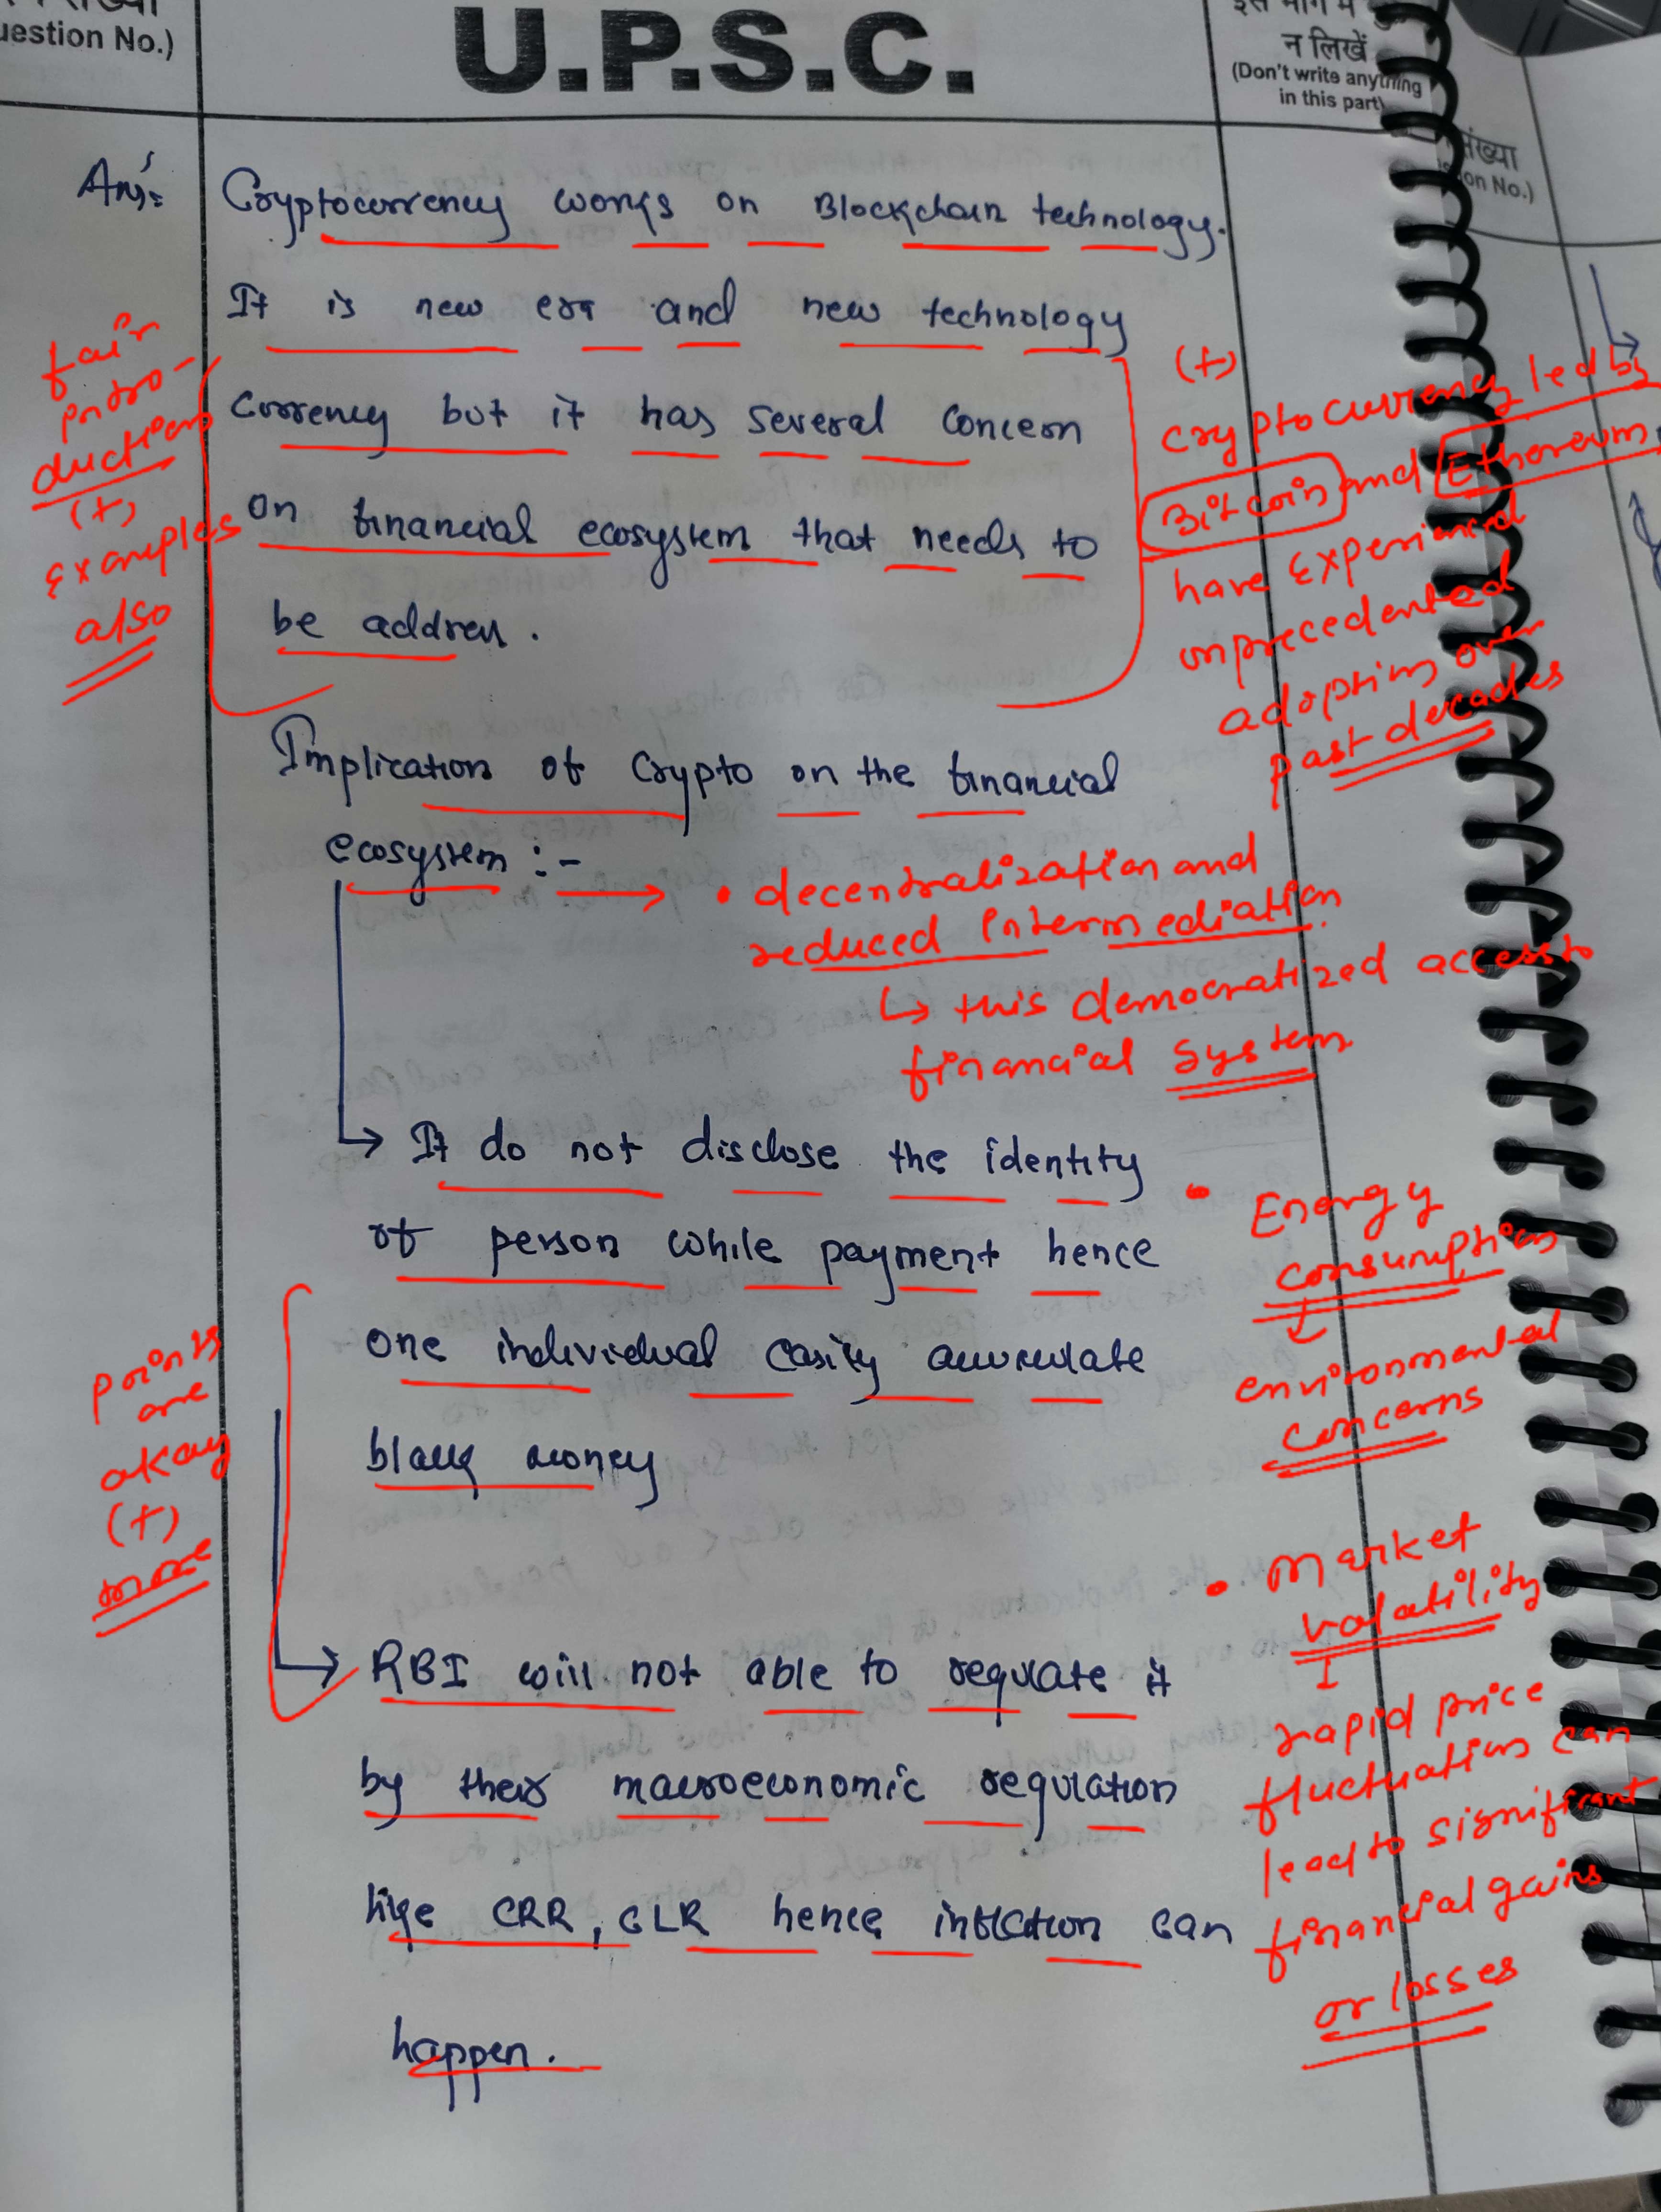 uestion No.)
U.P.S.C.
इस भाग में
न लिखें
(Don't write anything
in this part)
संख्या
on No.)
Ans:
Cryptocurrency works on Blockchain technology.
It is new era and new technology
currency but it has several concern
on financial ecosystem that needs to
be address.
fair
intro-
duction
(+)
Examples
also
(+)
cryptocurrency led by
Bitcoin and Ethoreum,
have Experienced
unprecedented
adoptim over
past decades
Implication of Crypto on the financial
ecosystem :-
• decentralization and
reduced Intermediation.
↳ this democratized access to
financial system
→ It do not disclose the identity
of person while payment hence
one individual easily accumulate
black money
• Energy
consumption
↓
environmental
concerns
points
are
okay
(+)
more
→ RBI will not able to regulate it
by their macroeconomic regulation
like CRR, SLR hence inflation can
happen.
• Market
volatility
↓
rapid price
fluctuations can
lead to significant
financial gains
or losses